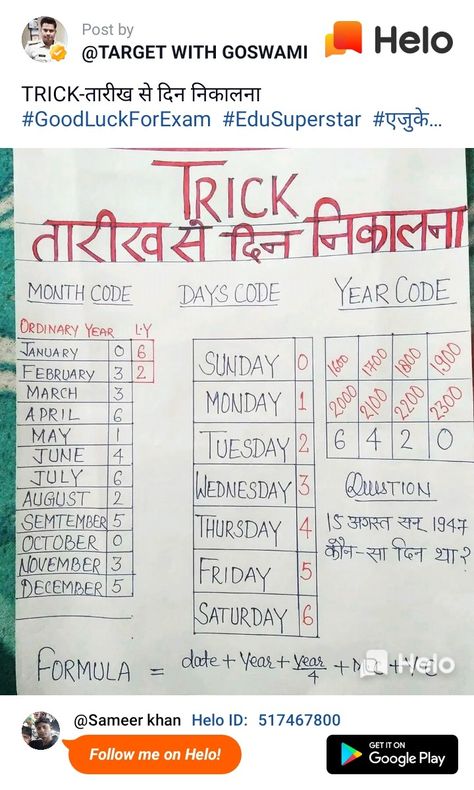 Post by
@TARGET WITH GOSWAMI
Helo
TRICK-तारीख से दिन निकालना
#GoodLuckForExam #EduSuperstar #एजुके...
TRICK
तारीख से दिन निकालना
MONTH CODE
DAYS CODE
YEAR CODE
ORDINARY YEAR L.Y
JANUARY 0 6
FEBRUARY 3 2
MARCH 3
APRIL 6
MAY 1
JUNE 4
JULY 6
AUGUST 2
SEMTEMBER 5
OCTOBER 0
NOVEMBER 3
DECEMBER 5
SUNDAY 0
MONDAY 1
TUESDAY 2
WEDNESDAY 3
THURSDAY 4
FRIDAY 5
SATURDAY 6
1600 1700 1800 1900
2000 2100 2200 2300
6 4 2 0
QUESTION
15 अगस्त सन् 1947
कौन-सा दिन था?
FORMULA = date + Year + Year/4 +
Helo
@Sameer khan Helo ID: 517467800
Follow me on Helo!
GET IT ON
Google Play